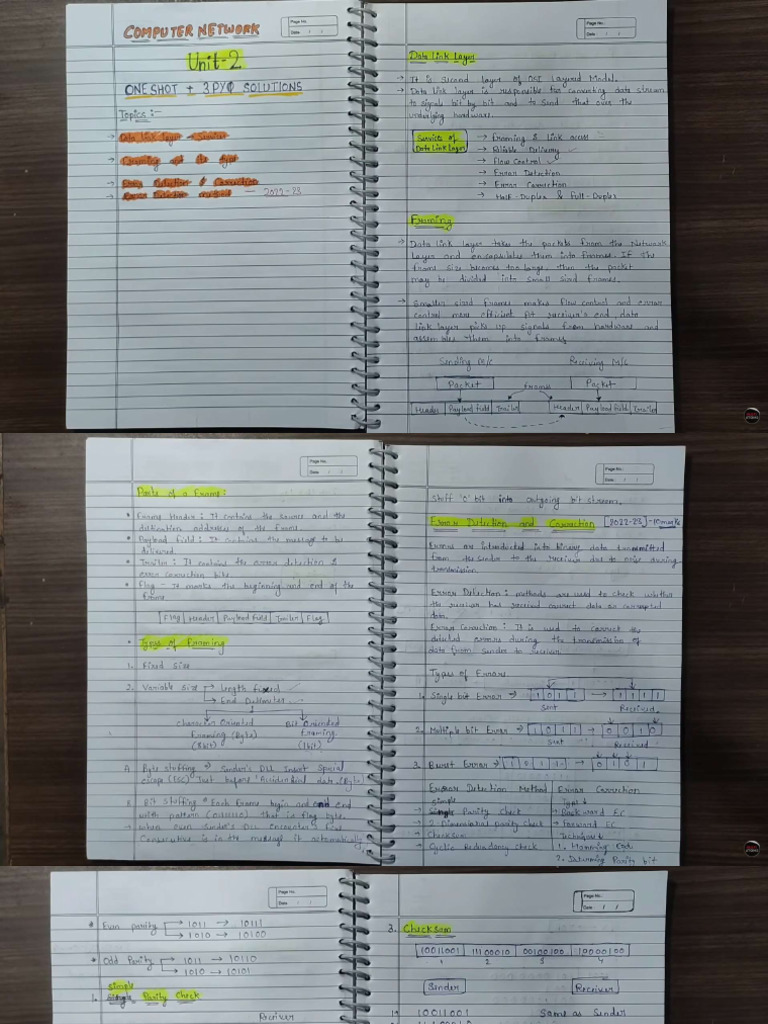 COMPUTER NETWORK
Page No.
Date / /
Unit-2
ONE SHOT + 3 PYQ SOLUTIONS
Topics :-
→ Data link layer
→ Framing
→ Error Detection & Correction
— 2022-23
Page No.
Date / /
Data Link Layer
→ It is second layer of OSI Layered Model.
→ Data link layer is responsible for converting data stream
to signals bit by bit and to send that over the
underlying hardware.
Services of
Data Link Layer
→ Framing & Link access
→ Reliable Delivery
→ Flow Control
→ Error Detection
→ Error Correction
→ Half-Duplex & Full-Duplex
Framing
→ Data link layer takes the packets from the Network
Layer and encapsulates them into frames. If the
frame size becomes too large, then the packet
may be divided into small sized frames.
→ Smaller sized frames makes flow control and error
control more efficient. At receiver's end data
link layer picks up signals from hardware and
assembles them into frames
Sending M/C Receiving M/C
Packet Frame Packet
Header Payload Field Trailer Header Payload Field Trailer
Page No.
Date / /
Parts of a Frame:
• Frame Header : It contains the source and the
destination addresses of the frame.
• Payload field : It contains the message to be
delivered
• Trailer : It contains the error detection &
error correction bits.
• Flag - It marks the beginning and end of the
frame.
Flag Header Payload Field Trailer Flag
• Types of Framing
1. Fixed Size
2. Variable Size → Length fixed
→ End Delimeter
Character Oriented Bit Oriented
Framing (Byte) Framing
(8bit) (1bit)
A. Byte stuffing → Sender's DLL Insert Special
escape (ESC) Just before 'Accidential data. (Byte)
B. Bit stuffing * Each frame begin and end
with pattern that is flag byte.
→ when ever Sender's DLL encounters five
Consecutive 1s in the message it automatically
Page No.
Date / /
Stuff '0' bit into outgoing bit stream.
Error Detection and Correction [2022-23]-10marks
Errors are introduced into binary data transmitted
from the sender to the receiver due to noise during
transmission.
Error Detection : methods are used to check whether
the receiver has received correct data or corrupted
data.
Error Correction : It is used to correct the
detected errors during the transmission of
data from sender to receiver.
Types of Errors
1. Single bit Error → 1 0 1 1 → 1 1 1 1
Sent Received
2. Multiple bit Error → 1 0 1 1 → 0 0 1 0
Sent Received
3. Burst Error → 1 0 1 1 → 0 1 0 1
Error Detection Method Error Correction
Simple Types
→ Parity Check → Backward Ec
→ 2 Dimensional parity Check → Forward Ec
→ Checksum Techniques
→ Cyclic Redundancy Check 1. Hamming Code
2. Determining Parity bit
Page No.
Date / /
* Even parity → 1011 → 10111
→ 1010 → 10100
* Odd Parity → 1011 → 10110
→ 1010 → 10101
simple
1. Parity Check
Receiver
Page No.
Date / /
3. Checksum
10011001 11100010 00100100 10000100
1 2 3 4
Sender Receiver
10011001 Same as Sender